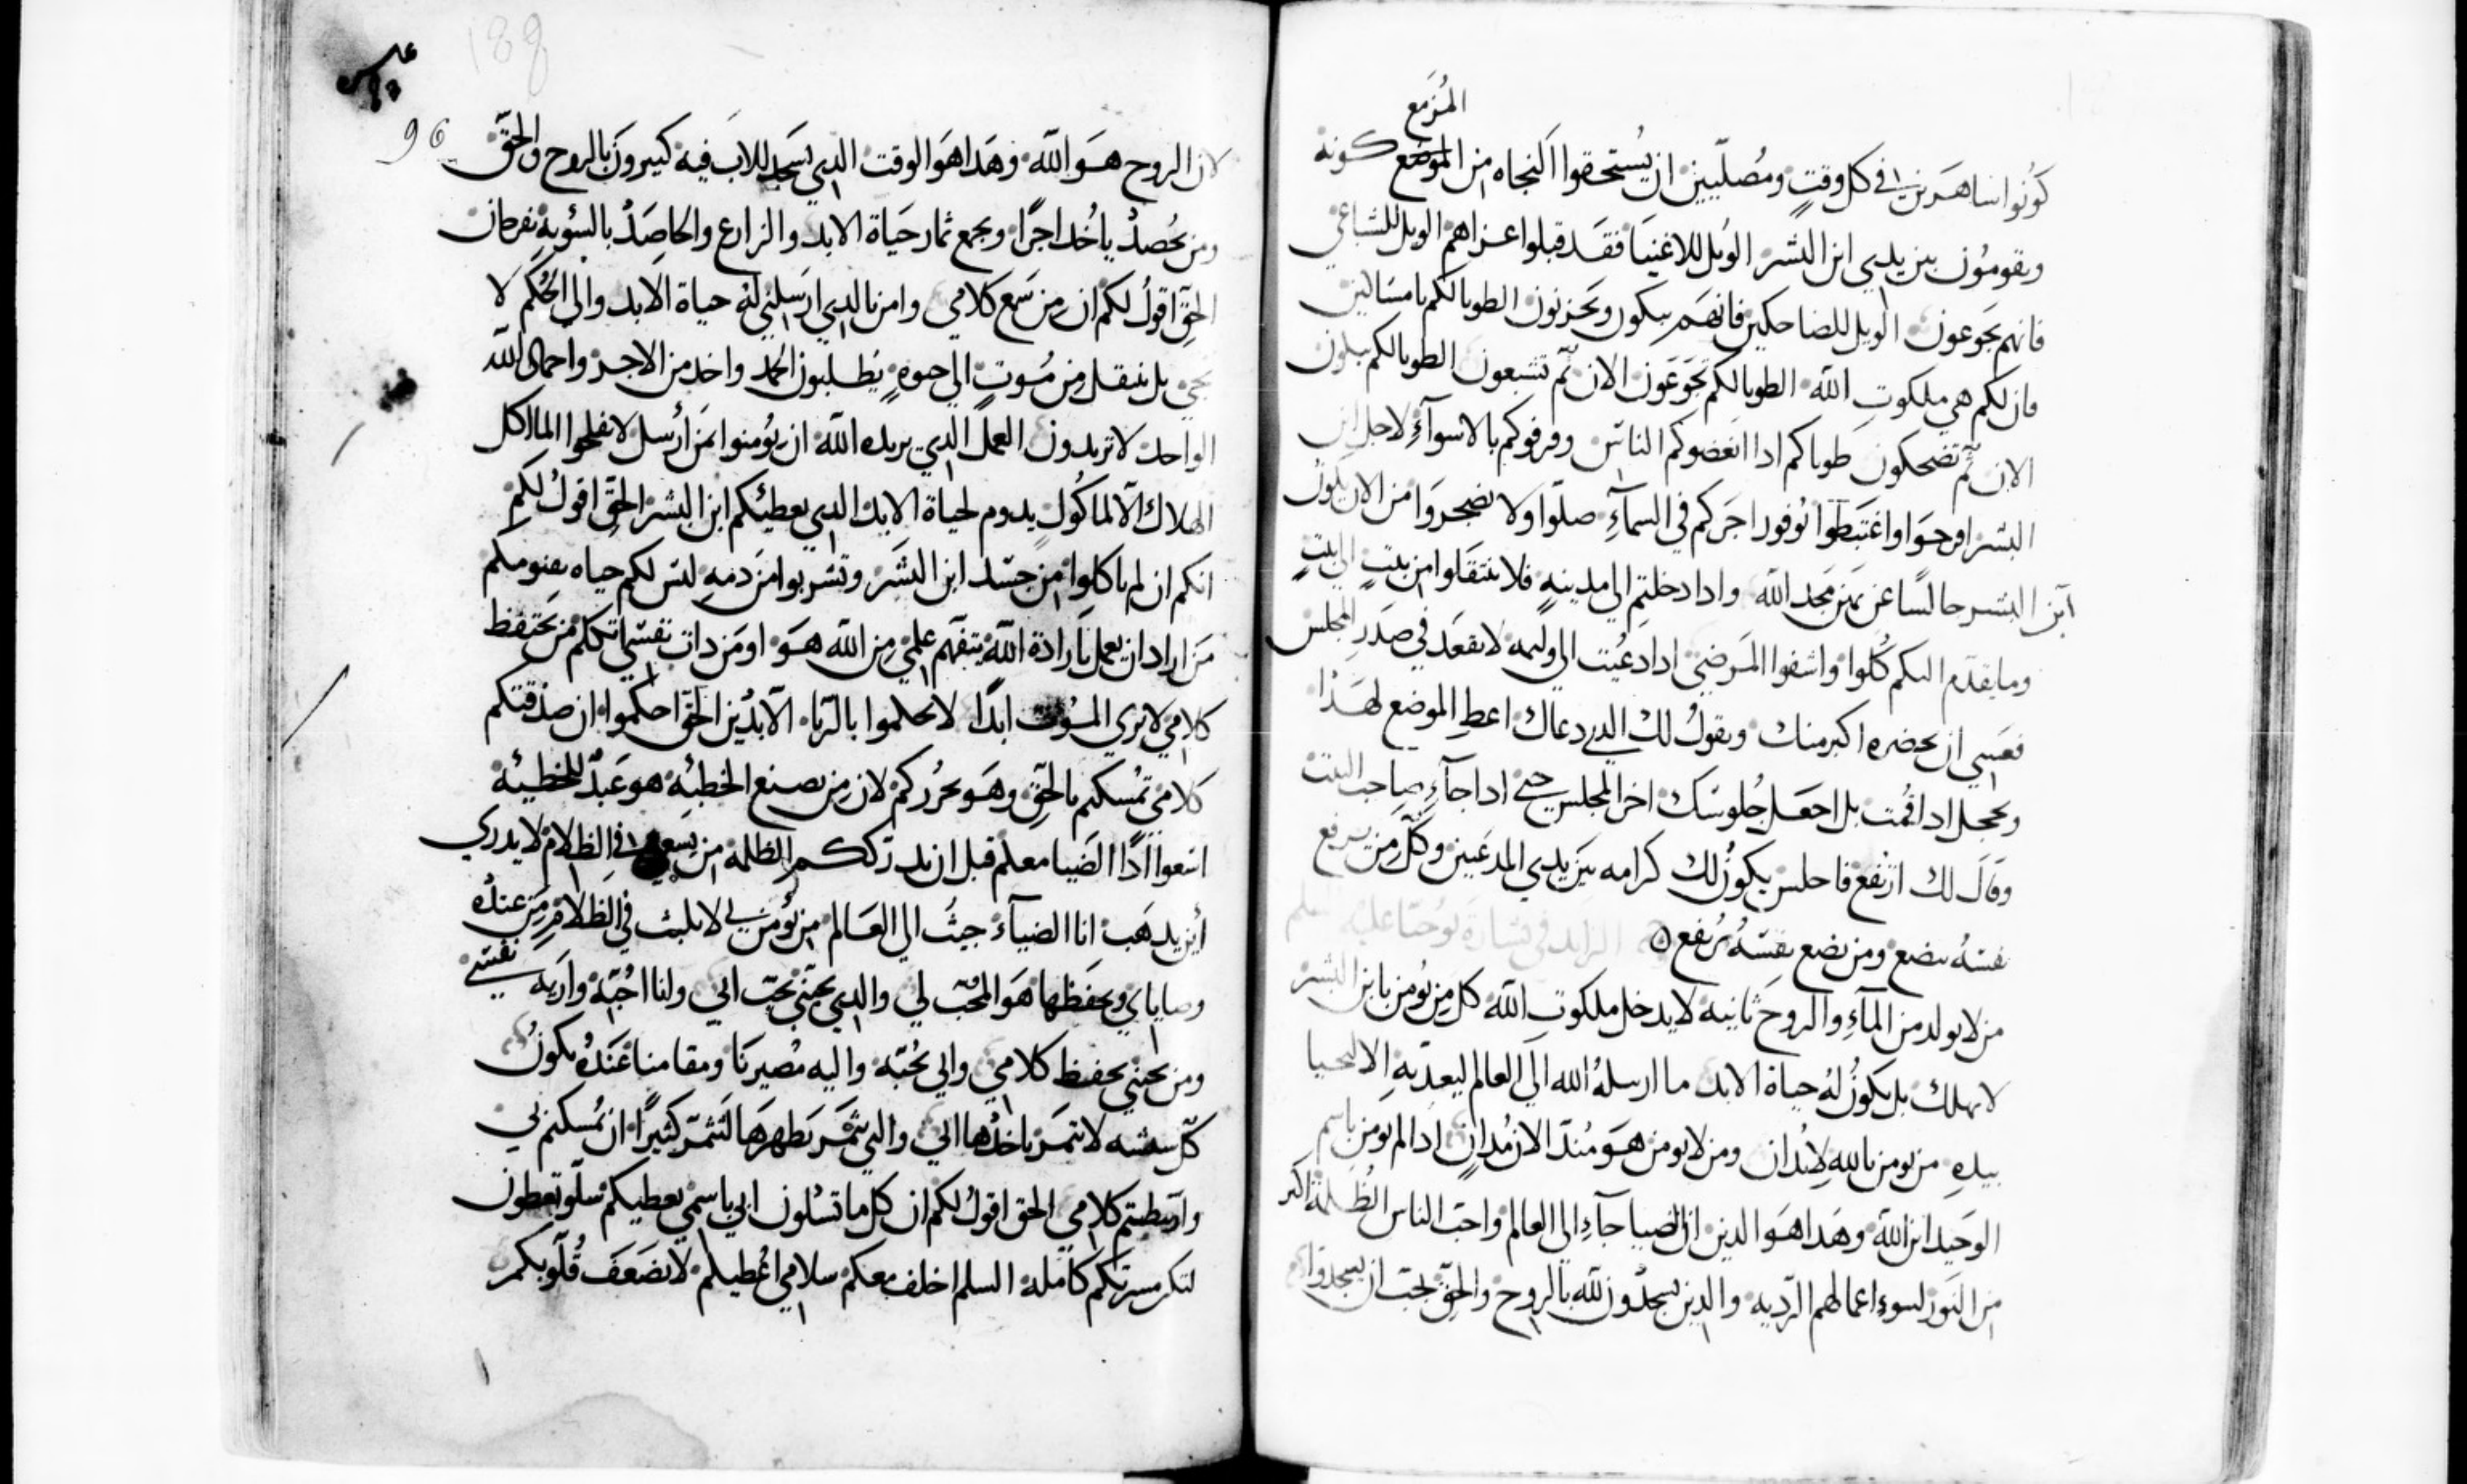 المزمع
كونوا ساهرين في كل وقت ومصليين ان تستحقوا النجاه من الموضع كونه
وتقومون بين يدي ابن البشر الويل للاغنيا فقد قبلوا عزاهم الويل للشباعي
فانهم يجوعون الويل للضاحكين فانهم يبكون ويحزنون الطوبا لكم يا مساكين
فان لكم هي ملكوت الله الطوبا لكم تجوعون الان ثم تشبعون الطوبا لكم تبكون
الان ثم تضحكون طوباكم ادا ابغضوكم الناس وقرفوكم بالاسوآء لاجل ابن
البشر افرحوا واغتبطوا بوفور اجركم في السمآء صلوا ولا تضجروا من الان يكون
ابن البشر جالسا عن يمين مجد الله وادا دخلتم الي مدينه فلا تنتقلوا من بيت الي بيت
وما يقدم اليكم كلوا واشفوا المرضي ادا دعيت الي وليمه لا تقعد في صدر المجلس
فعسي ان يحضره اكبر منك ويقول لك الدي دعاك اعط الموضع لهدا
وتخجل ادا قمت بل اجعل جلوسك اخر المجلس حتي ادا جآء صاحب البيت
وقال لك ارتفع فاجلس يكون لك كرامه بين يدي المدعيين وكل من يرفع
نفسه يتضع ومن يضع نفسه يرتفع
الرابد في بشارة يوحنا عليه السلم
من لا يولد من المآء والروح ثانيه لا يدخل ملكوت الله كل من يومن بابن البشر
لا يهلك بل يكون له حياة الابد ما ارسله الله الي العالم ليعدبه الا ليحيا
بيده من يومن بالله لا يدان ومن لا يومن هو مند الان مدان ادا لم يومن باسم
الوحيد ابن الله وهدا هو الدين ان الضيا جآء الي العالم واحب الناس الظلمة اكثر
من النور لسوء اعمالهم الرديه والدين يسجدون لله بالروح والحق يجب ان يسجدوا
188
96
لان الروح هو الله وهدا هو الوقت الدي يسجد للاب فيه كبيرون بالروح والحق
ومن يحصد ياخد اجرا ويجمع ثمار حياة الابد والزارع والحاصد بالسوية يفرحان
الحق اقول لكم ان من سمع كلامي وامن بالدي ارسلني له حياة الابد والي الحكم لا
يجي بل ينتقل من موت الي حيوه يطلبون الحمد واحد من الاخر واحمال الله
الواحد لا تريدون العمل الدي يريده الله ان يومنوا بمن ارسل لا تفلحوا الماكل
الهلاك الا لماكول يدوم لحياة الابد الدي يعطيكم ابن البشر الحق اقول لكم
انكم ان لم تاكلوا من جسد ابن البشر وتشربوا من دمه ليس لكم حياه بقنومكم
من اراد ان يعمل بارادة الله يتفهم علمي من الله هو او من دات نفسي اتكلم من يحتفظ
كلامي لا يري الموت ابدا لا تحكموا بالريا الا بدين الحق احكموا ان صدقتكم
كلامي تمسكتم بالحق وهو يحرركم لان من يصنع الخطئه هو عبد للخطيئة
اتبعوا ادا الضيا معلم قبل ان يدرككم الظلمه من يسعي في الظلام لا يدري
أين يدهب انا الضيآء جيت الي العالم من يؤمن بي لا يلبث في الظلام من عنده
وصاياي ويحفظها هو المحب لي والدي يحبني يحب ابي ولنا احبه واريه نفسي
ومن يحبني يحفظ كلامي وابي يحبه واليه مصيرنا ومقامنا عنده يكون
كل سفشه لا تتمر ياخدها ابي والتي تتمر يطهرها لتتمر كثيرا ان تمسكتم بي
وارتبطتم كلامي الحق اقول لكم ان كل ما تسئلون ابي باسمي يعطيكم سلو تعطون
لتكن مسرتكم كامله السلم اخلف معكم سلامي اعطيكم لا تضعف قلوبكم